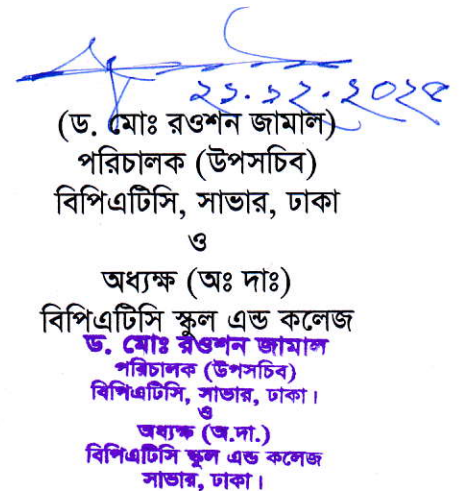 ২১.১২.২০২৫
(ড. মোঃ রওশন জামাল)
পরিচালক (উপসচিব)
বিপিএটিসি, সাভার, ঢাকা
ও
অধ্যক্ষ (অঃ দাঃ)
বিপিএটিসি স্কুল এন্ড কলেজ
ড. মোঃ রওশন জামাল
পরিচালক (উপসচিব)
বিপিএটিসি, সাভার, ঢাকা।
ও
অধ্যক্ষ (অ.দা.)
বিপিএটিসি স্কুল এন্ড কলেজ
সাভার, ঢাকা।